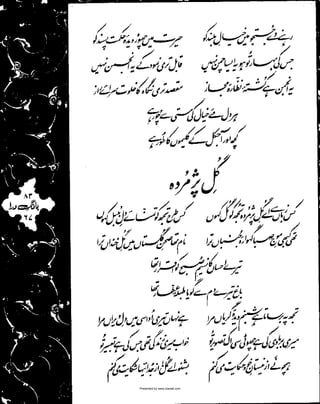 رہنے دے جستجو میں خیالِ بلند کو حیرت میں چھوڑ دیدۂ حکمت پسند کو
جس کی بہار تو ہو یہ ایسا چمن نہیں قابل تری نمود کے یہ انجمن نہیں
یہ انجمن ہے کشتۂ نظارۂ مجاز مقصد تری نگاہ کا خلوت سرائے راز
ہر دل مئے خیال کی مستی سے چور ہے
کچھ اور آجکل کے کلیموں کا طور ہے
گلِ پژمردہ
کس زباں سے اے گلِ پژمردہ تجھ کو گل کہوں کس طرح تجھ کو تمنائے دلِ بلبل کہوں
تھی کبھی موجِ صبا گہوارۂ جنباں ترا نام تھا صحنِ گلستاں میں گلِ خنداں ترا
تیرے احساں کا نسیمِ صبح کو اقرار تھا
باغ تیرے دم سے گویا طبلۂ عطار تھا
تجھ پہ برساتا ہے شبنم دیدۂ گریاں مرا ہے نہاں تیری اداسی میں دلِ ویراں مرا
میری بربادی کی ہے چھوٹی سی اک تصویر تو خواب میری زندگی تھی جس کی ہے تعبیر تو
ہمچو نے از نیستانِ خود حکایت می کنم بشنو اے گل! از جدائی ہا شکایت می کنم
۸۳
بانگِ درا
۶۷